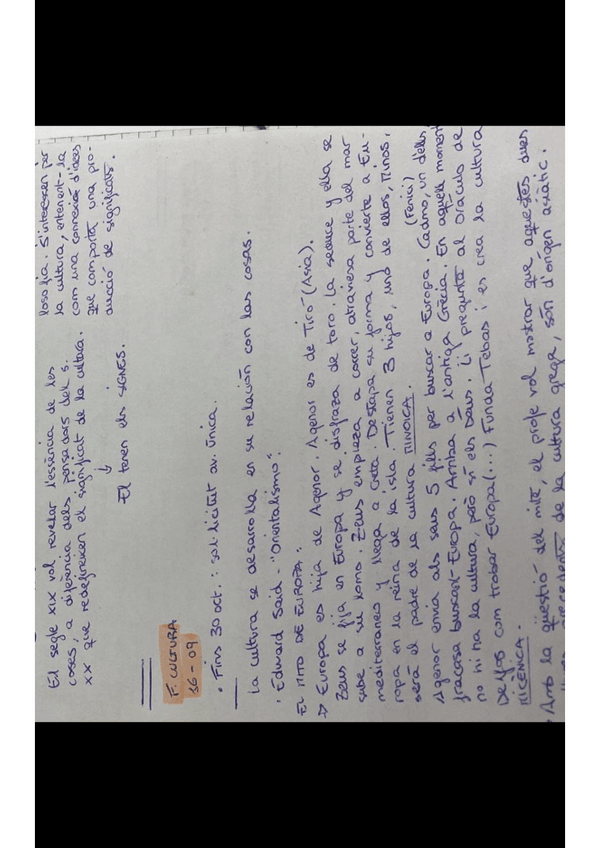 El segle XIX vol revelar l'essència de les
coses, a diferència dels pensadors del s.
XX que redefineixen el significat de la cultura.
↓
El tenen els SIGNES.
losofia. S'interessen per
la cultura, entenent-la
com una connexió d'idees
que comporta una pro-
ducció de significats.
F. CULTURA
16-09
· Fins 30 oct.: sol·licitut av. única.
La cultura se desarrolla en su relación con las cosas.
· Edward Said. "Orientalismo".
EL MITO DE EUROPA:
→ Europa es hija de Agenor. Agenor es de Tiro (Asia).
Zeus se fija en Europa y se disfraza de toro. La seduce y ella se
sube a su lomo. Zeus empieza a correr, atraviesa parte del mar
mediterraneo y llega a Creta. Destapa su forma y convierte a Eu-
ropa en la reina de la isla. Tienen 3 hijos, uno de ellos, Minos,
será el padre de la cultura MINOICA.
(Fenici)
Agenor envia als seus 5 fills per buscar a Europa. Cadmo, un d'ells
fracasa buscant Europa. Arriba a l'antiga Grècia. En aquell moment
no hi ha cultura, però sí els Déus. Li pregunta al Oráculo de
Delfos com trobar Europa (...) Funda Tebas i es crea la cultura
MICÈNICA.
· Amb la qüestió del mite, el profe vol mostrar que aquestes dues
precedents de la cultura grega, són d'origen asiàtic.